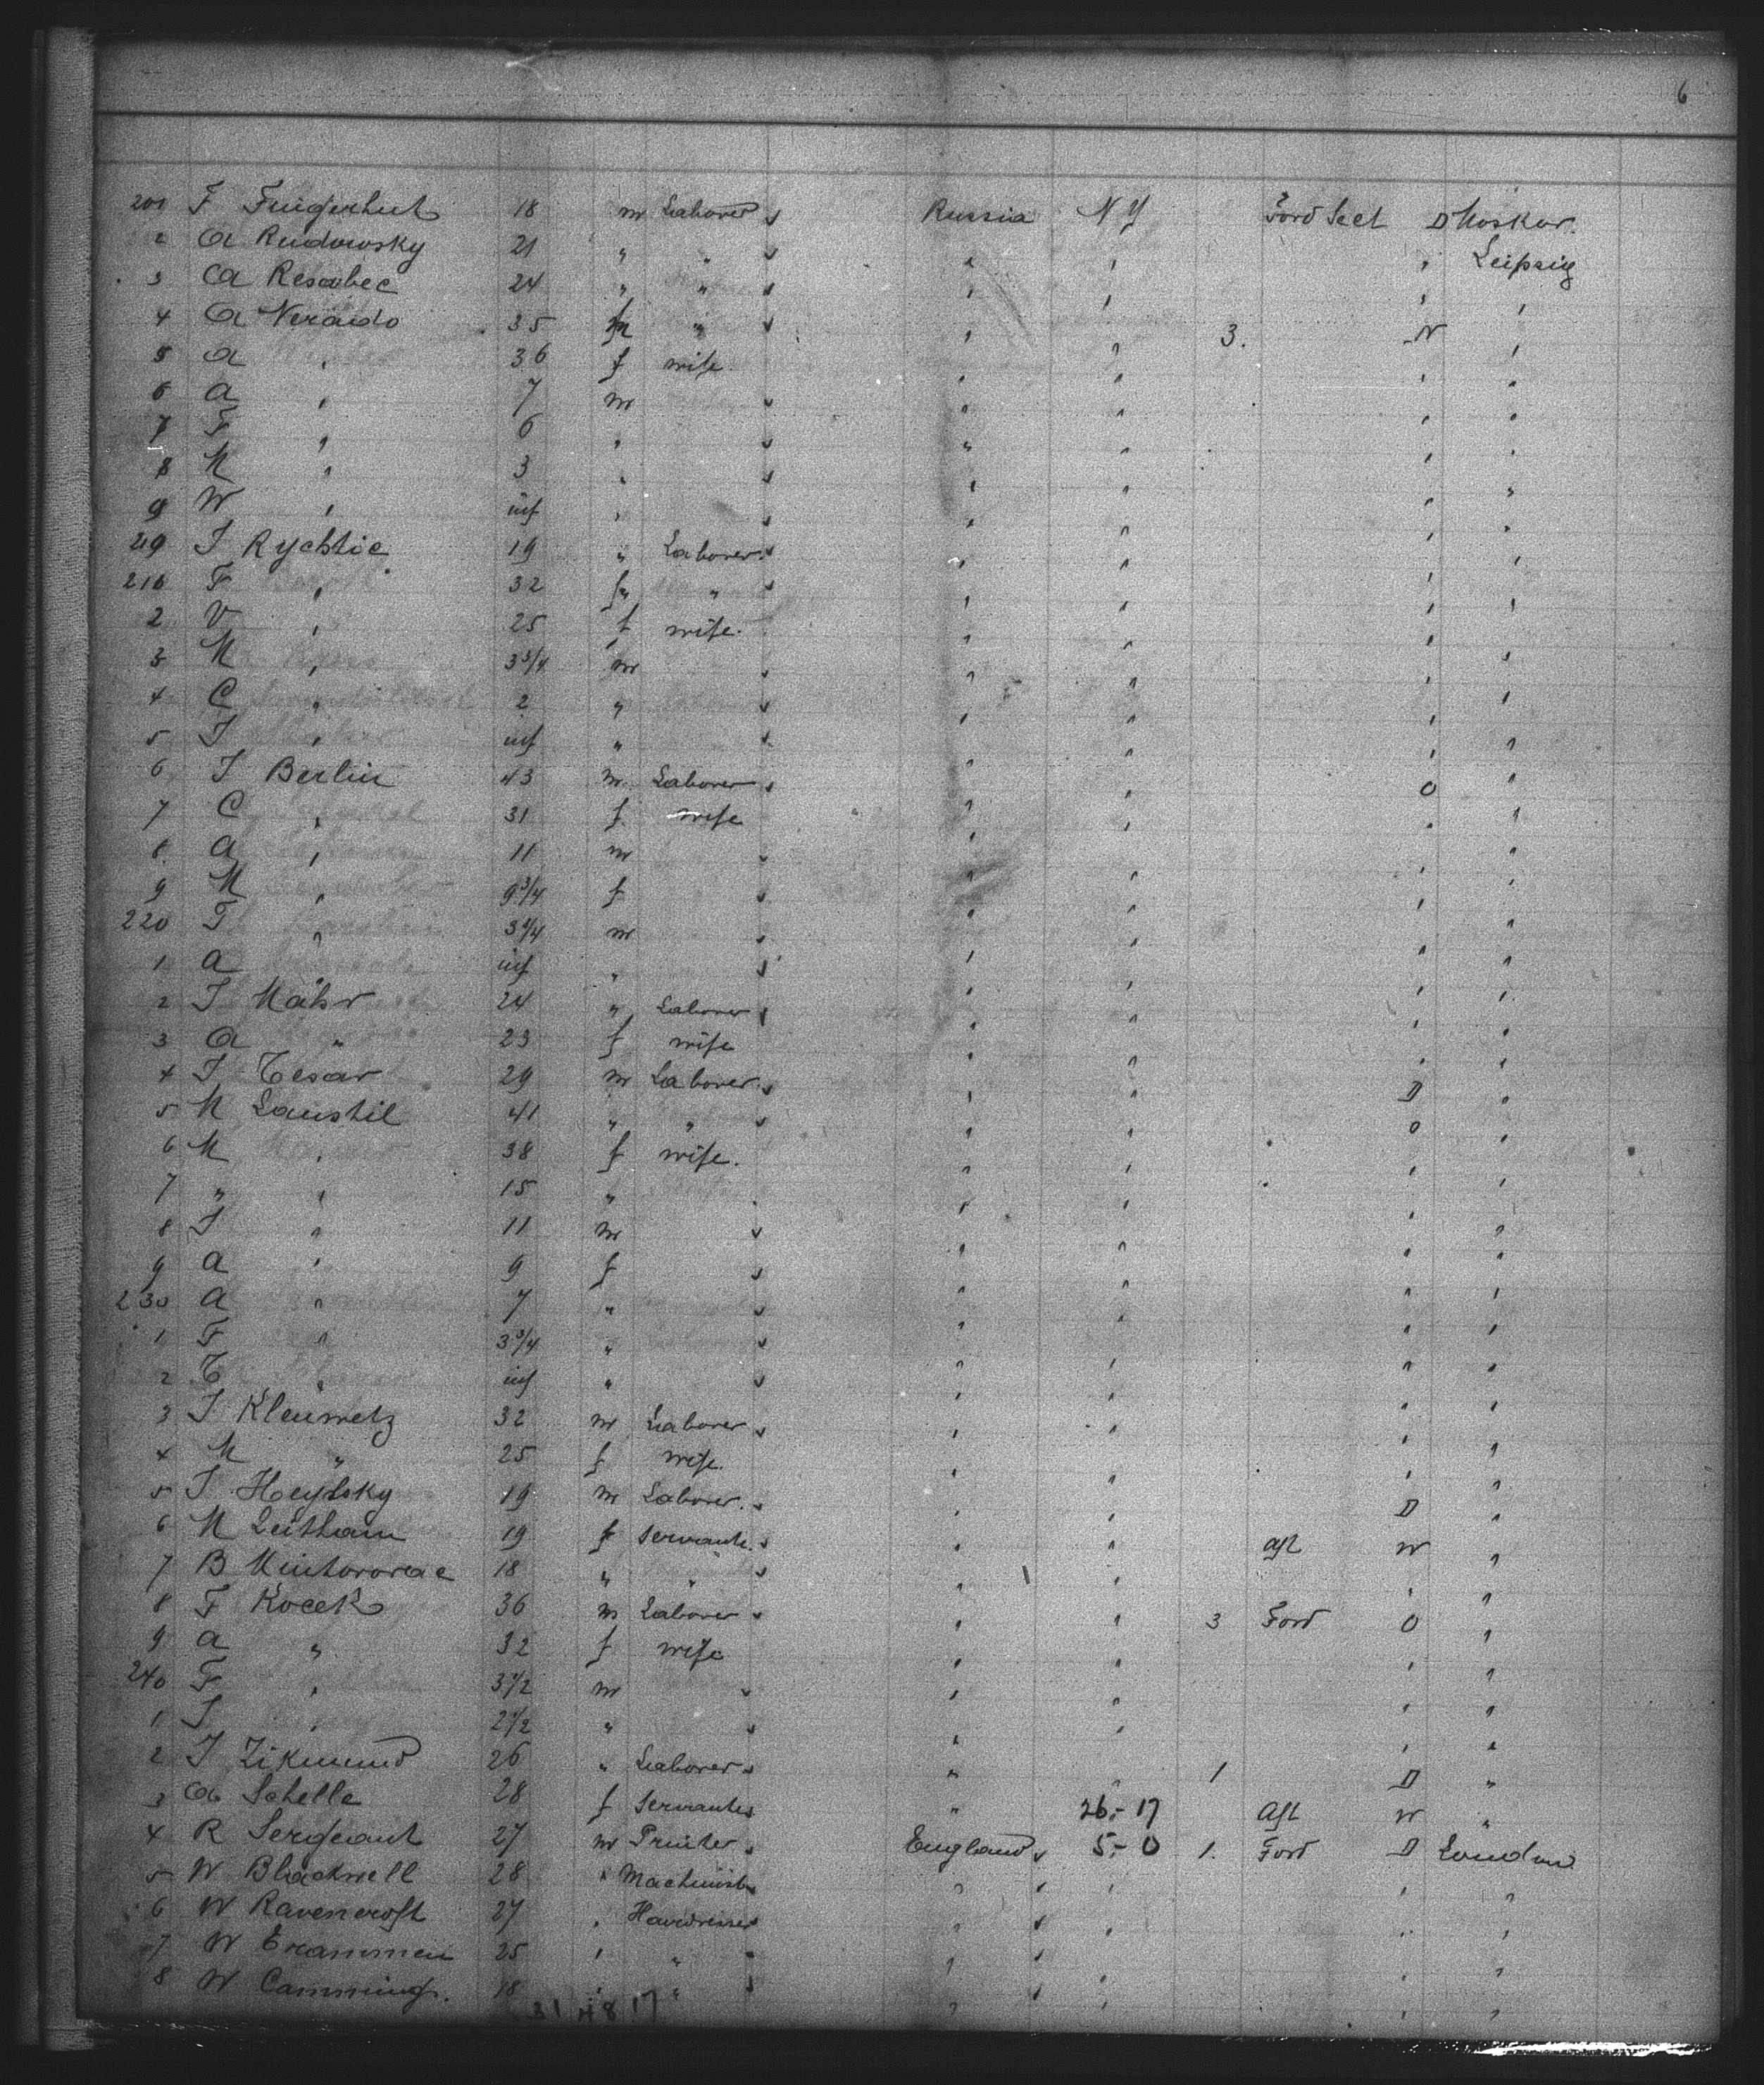 6
201 F Fingerhut 18 m Laborer s Russia N Y Forw Sect D Moskov.
2 A Rudowsky 21 " " s " " " Leipzig
3 A Resabec 24 " " s " " " "
4 A Neraido 35 m " s " " 3. N "
5 A " 36 f wife " " " "
6 A " 7 m s " " " "
7 F " 6 " s " " " "
8 M " 3 " s " " " "
9 W " inf " s " " " "
J Rychtic 19 " Laborer s " " " "
F " 32 " " s " " " "
2 V " 25 f wife. " " " "
3 M " 3 3/4 m s " " " "
4 C " 2 " s " " " "
5 J " inf " s " " " "
6 J Berlin 43 m. Laborer s " " O "
7 C " 31 f. wife " " " "
8 A " 11 m s " " " "
9 M " 9 3/4 f s " " " "
220 T " 3 1/4 m s " " " "
1 A " inf " s " " " "
2 J Mähr 24 " Laborer s " " " "
3 A " 23 f wife " " " "
4 J Tesar 29 m Laborer s " " D "
5 M Laushil 41 " " s " " O "
6 M " 38 f wife. " " " "
7 " " 15 " " " " "
8 J " 11 m s " " " "
9 A " 9 f s " " " "
230 A " 7 " s " " " "
1 F " 3 3/4 " s " " " "
2 T " inf " s " " " "
3 J Kleumetz 32 m Laborer s " " " "
4 M " 25 f wife. " " " "
5 J Heytsky 19 m Laborer. s " " D "
6 M Leitham 19 f Servante. s " " aft W "
7 B 18 " " s " " " "
8 F Kocek 36 m Laborer s " " 3 Forw O "
9 A " 32 f wife " " " "
240 F " 3 1/2 m s " " " "
1 J " 2 1/2 " s " " " "
2 J Zikmund 26 " Laborer s " " 1 D "
3 A Schelle 28 f Servante s " 26.-17 aft W "
4 R Sergeant 27 m Printer s England s 5.-0 1. Forw D London
5 W Blackwell 28 " Machinist s " s " " "
6 W Ravencroft 27 " Hairdresser " s " " "
7 W 25 " " " s " " "
8 W Cammings. 18 " " s " s " " "
31 48 17